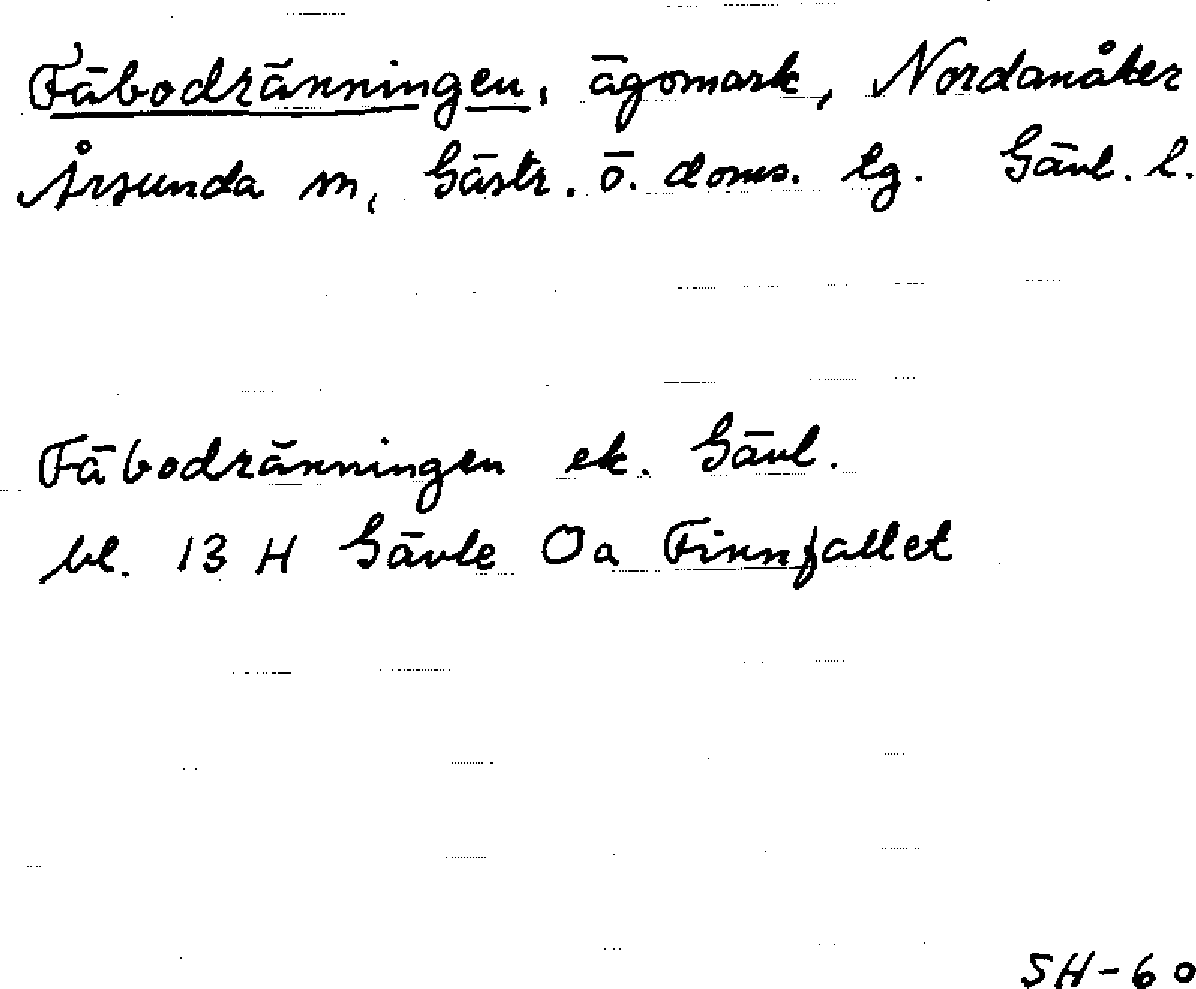 Fäbodränningen, ägomark, Nordanåker
Årsunda sn, Gästr. ö. doms. tg. Gävl. l.
Fäbodränningen ek. Gävl.
bl. 13 H Gävle 0a Finnfallet
SH-60